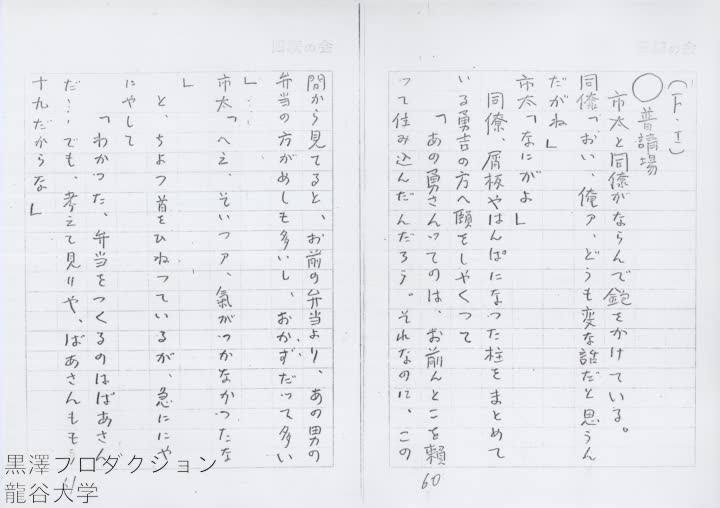 (F・I)
○普請場
市太と同僚がならんで鉋をかけている。
同僚「おい、俺ァ、どうも変な話だと思うん
だがね」
市太「なにがよ」
同僚、屑板やはんぱになつた柱をまとめて
いる勇吉の方へ顎をしやくつて
「あの勇さんつてのは、お前んとこを頼
つて住み込んだんだろう。それなのに、この
60
間から見てると、お前の弁当より、あの男の
弁当の方がめしも多いし、おかずだつて多い
…」
市太「へえ、そいつァ、氣がつかなかつたな
」
と、ちよつ首をひねつているが、急ににや
にやして
「わかつた、弁当をつくるのはばあさん
だ……でも、考えて見りや、ばあさんももう
十九だからな」
61
黒澤プロダクション
龍谷大学